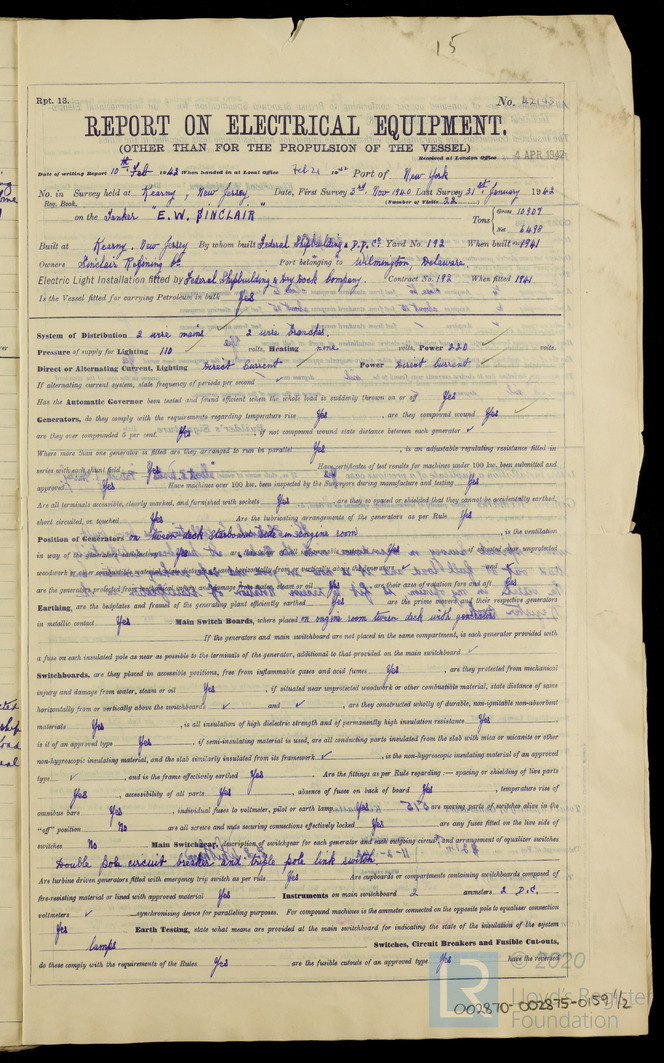 15
Rpt. 13.
No. 42193
REPORT ON ELECTRICAL EQUIPMENT.
(OTHER THAN FOR THE PROPULSION OF THE VESSEL)
Received at London Office 4 APR 1942
Date of writing Report 10th Feb 1942 When handed in at Local Office Feb 21 1942 Port of New York
No. in Survey held at Kearny, New Jersey. Date, First Survey 3rd Nov 1940 Last Survey 21st January 1942
Reg. Book. (Number of Visits 22)
on the Tanker "E. W. SINCLAIR" Tons { Gross 10907
Net 6498
Built at Kearny. New Jersey By whom built Federal Shipbuilding & D.D. Co. Yard No. 192 When built 1941
Owners Sinclair Refining Co Port belonging to Wilmington, Delaware.
Electric Light Installation fitted by Federal Shipbuilding & Dry Dock Company. Contract No. 192 When fitted 1941
Is the Vessel fitted for carrying Petroleum in bulk Yes
System of Distribution 2 wire mains 2 wire Branches.
Pressure of supply for Lighting 110 volts, Heating none volts, Power 220 volts.
Direct or Alternating Current, Lighting Direct Current Power Direct Current.
If alternating current system, state frequency of periods per second
Has the Automatic Governor been tested and found efficient when the whole load is suddenly thrown on or off Yes
Generators, do they comply with the requirements regarding temperature rise Yes, are they compound wound Yes
are they over compounded 5 per cent. Yes, if not compound wound state distance between each generator ✓
Where more than one generator is fitted are they arranged to run in parallel Yes, is an adjustable regulating resistance fitted in
series with each shunt field Yes Have certificates of test results for machines under 100 kw. been submitted and
approved Yes Have machines over 100 kw. been inspected by the Surveyors during manufacture and testing Yes
Are all terminals accessible, clearly marked, and furnished with sockets Yes, are they so spaced or shielded that they cannot be accidentally earthed,
short circuited, or touched Yes Are the lubricating arrangements of the generators as per Rule Yes
Position of Generators on tween deck starboard side in engine room, is the ventilation
in way of the generators satisfactory Yes if situated near unprotected
woodwork or other combustible material, state distance of same horizontally from or vertically above the generators
are the generators protected from mechanical injury and damage from water, steam or oil Yes, are their axes of rotation fore and aft Yes
Earthing, are the bedplates and frames of the generating plant efficiently earthed Yes are the prime movers and their respective generators
in metallic contact Yes Main Switch Boards, where placed on engine room tween deck with generators
If the generators and main switchboard are not placed in the same compartment, is each generator provided with
a fuse on each insulated pole as near as possible to the terminals of the generator, additional to that provided on the main switchboard ✓
Switchboards, are they placed in accessible positions, free from inflammable gases and acid fumes Yes, are they protected from mechanical
injury and damage from water, steam or oil Yes, if situated near unprotected woodwork or other combustible material, state distance of same
horizontally from or vertically above the switchboards ✓ and ✓, are they constructed wholly of durable, non-ignitable non-absorbent
materials Yes, is all insulation of high dielectric strength and of permanently high insulation resistance Yes,
is it of an approved type Yes, if semi-insulating material is used, are all conducting parts insulated from the slab with mica or micanite or other
non-hygroscopic insulating material, and the slab similarly insulated from its framework ✓, is the non-hygroscopic insulating material of an approved
type ✓, and is the frame effectively earthed Yes Are the fittings as per Rule regarding :— spacing or shielding of live parts
Yes, accessibility of all parts Yes, absence of fuses on back of board Yes, temperature rise of
omnibus bars Yes, individual fuses to voltmeter, pilot or earth lamp Yes are moving parts of switches alive in the
"off" position No are all screws and nuts securing connections effectively locked Yes are any fuses fitted on the live side of
switches No Main Switchgear, description of switchgear for each generator and each outgoing circuit, and arrangement of equalizer switches
Double pole circuit breaker and triple pole link switch
Are turbine driven generators fitted with emergency trip switch as per rule Yes Are cupboards or compartments containing switchboards composed of
fire-resisting material or lined with approved material Yes Instruments on main switchboard 2 ammeters 2 D.C.
voltmeters ✓ synchronising device for paralleling purposes. For compound machines is the ammeter connected on the opposite pole to equaliser connection
Yes Earth Testing, state what means are provided at the main switchboard for indicating the state of the insulation of the system
lamps Switches, Circuit Breakers and Fusible Cut-outs,
do these comply with the requirements of the Rules Yes are the fusible cutouts of an approved type Yes have the reversed
© 2020
Lloyd's Register
Foundation
002870-002875-0159 1/2